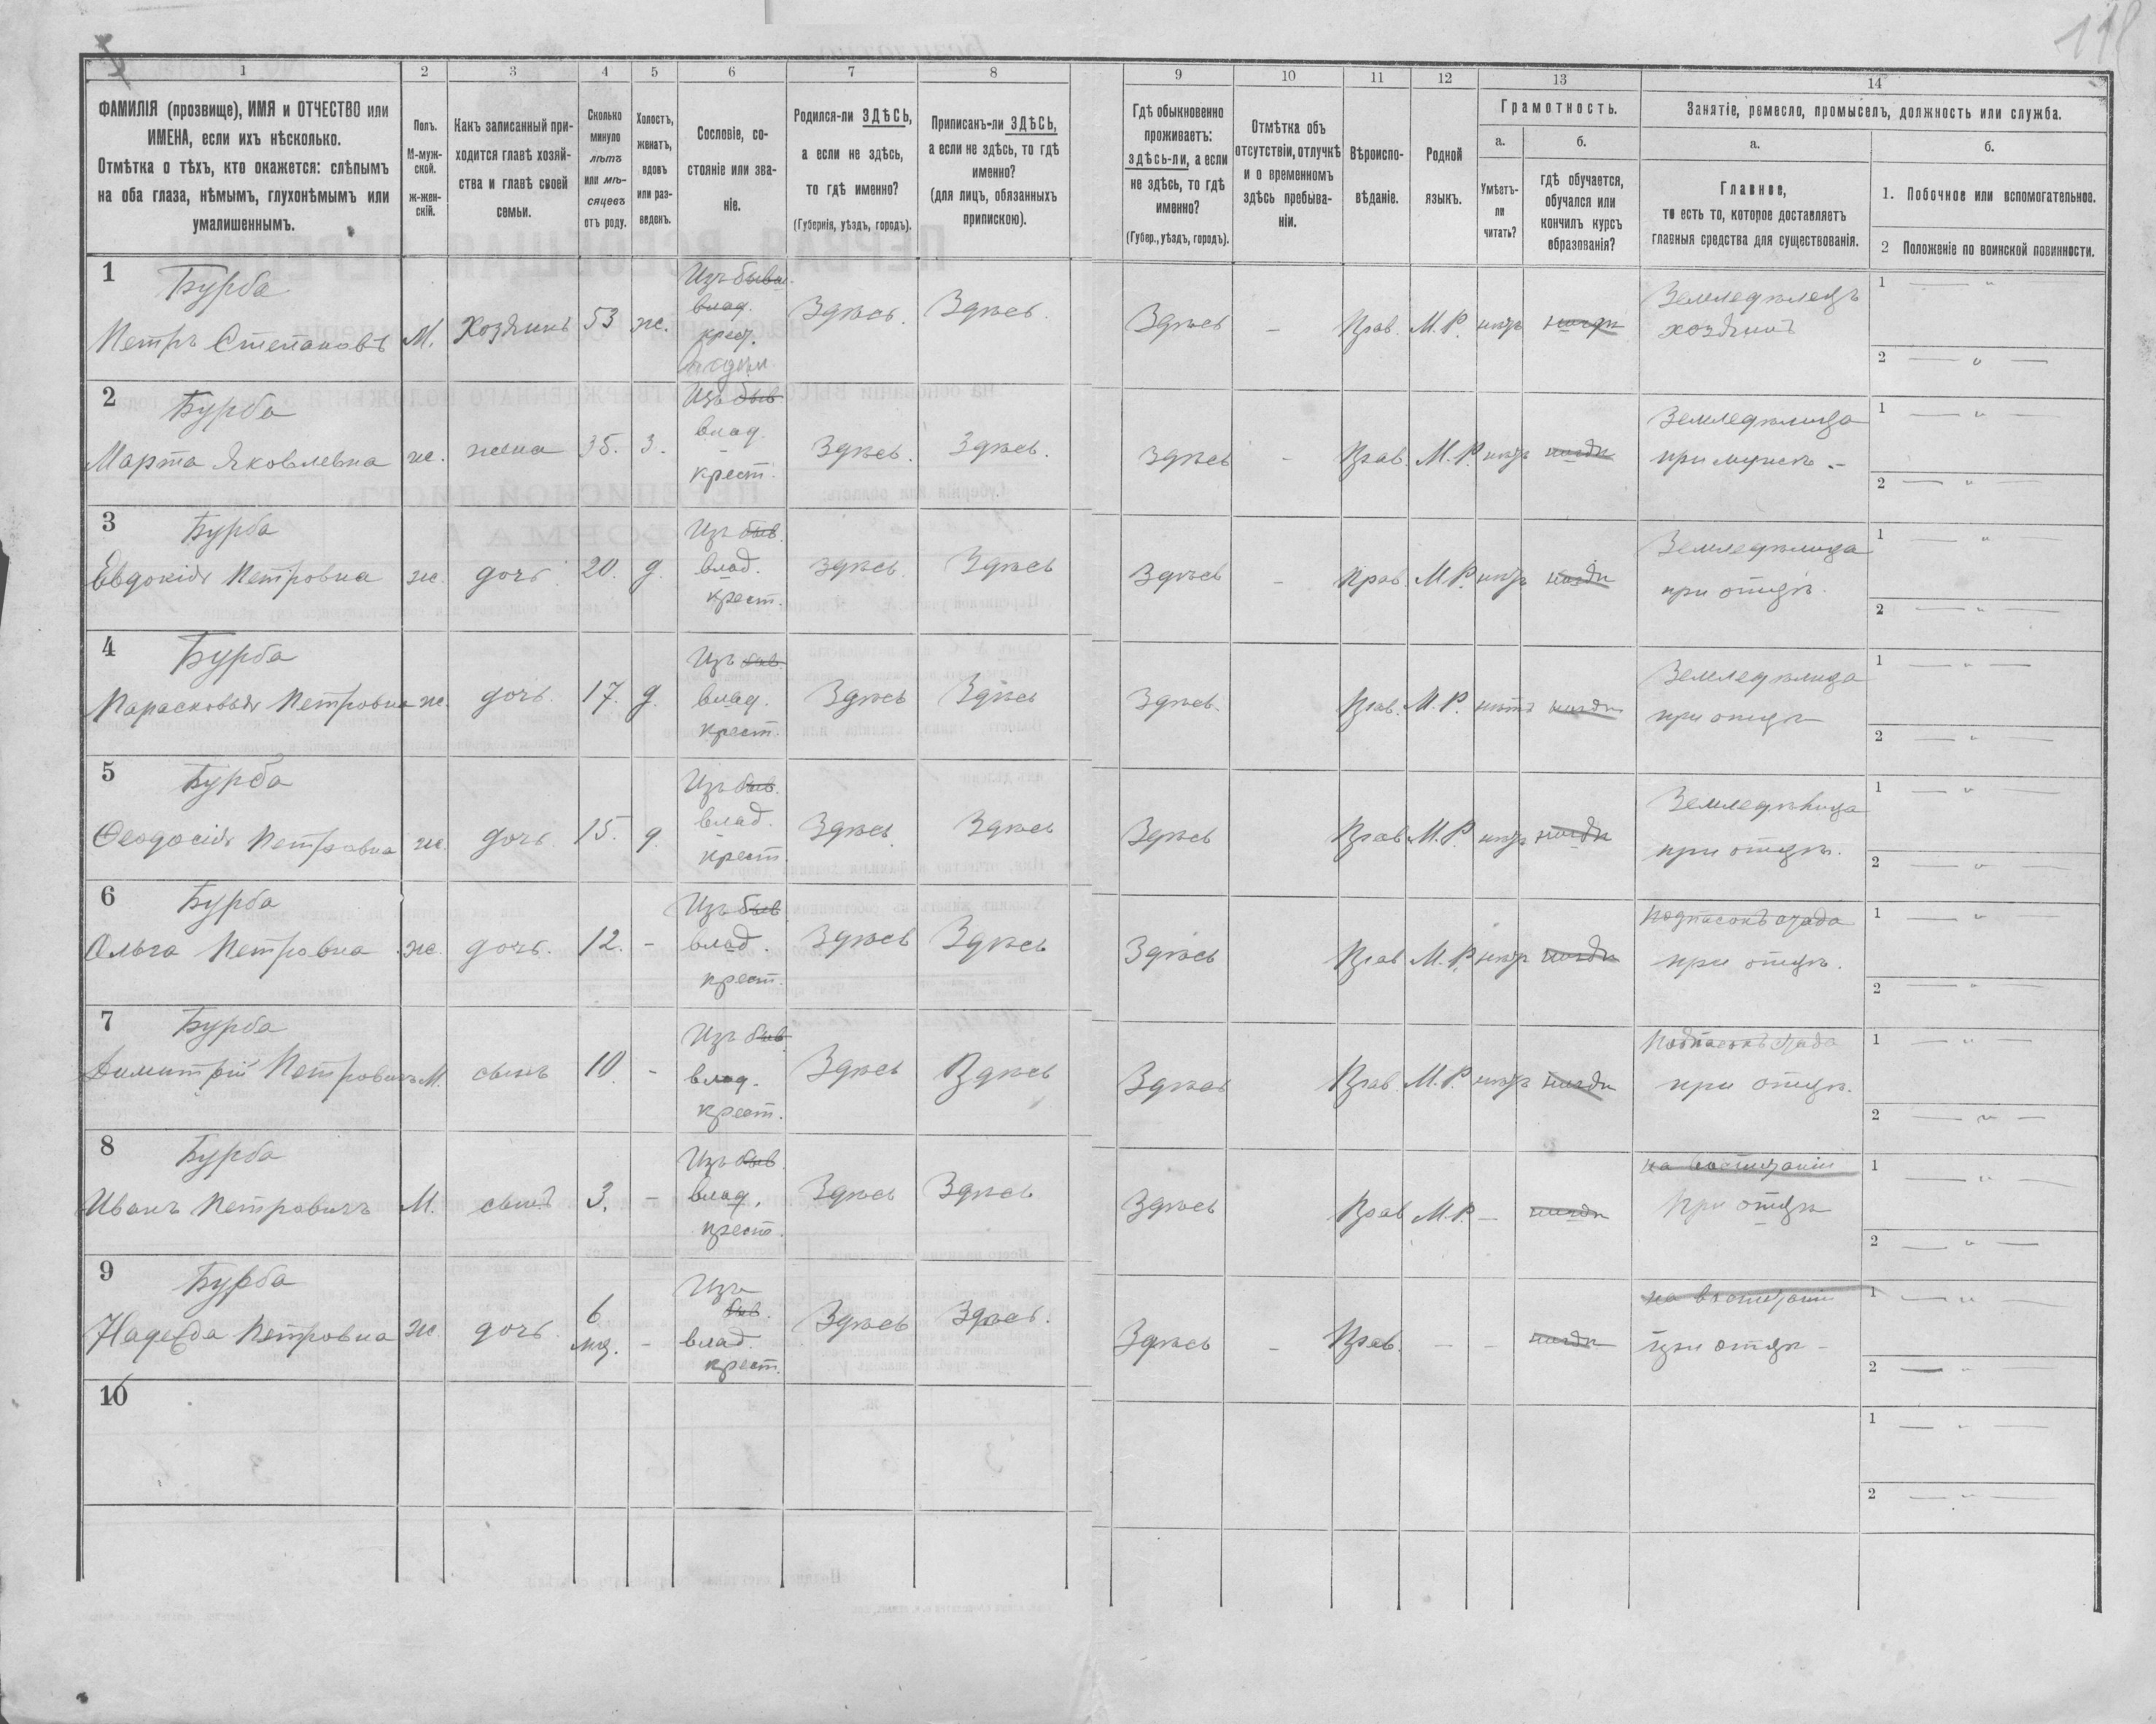 118
1 2 3 4 5 6 7 8 9 10 11 12 13 14
ФАМИЛІЯ (прозвище), ИМЯ и ОТЧЕСТВО или
ИМЕНА, если ихъ нѣсколько.
Отмѣтка о тѣхъ, кто окажется: слѣпымъ
на оба глаза, нѣмымъ, глухонѣмымъ или
умалишеннымъ.
Полъ.
М-муж-
ской.
ж-жен-
скій.
Какъ записанный при-
ходится главѣ хозяй-
ства и главѣ своей
семьи.
Сколько
минуло
лѣтъ
или мѣ-
сяцевъ
отъ роду.
Холостъ,
женатъ,
вдовъ
или раз-
веденъ.
Сословіе, со-
стояніе или зва-
ніе.
Родился-ли ЗДѢСЬ,
а если не здѣсь,
то гдѣ именно?
(Губернія, уѣздъ, городъ).
Приписанъ-ли ЗДѢСЬ,
а если не здѣсь, то гдѣ
именно?
(для лицъ, обязанныхъ
припискою).
Гдѣ обыкновенно
проживаетъ:
здѣсь-ли, а если
не здѣсь, то гдѣ
именно?
(Губер., уѣздъ, городъ).
Отмѣтка объ
отсутствіи, отлучкѣ
и о временномъ
здѣсь пребыва-
ніи.
Вѣроиспо-
вѣданіе.
Родной
языкъ.
Грамотность.
а.
Умѣетъ-
ли
читать?
б.
гдѣ обучается,
обучался или
кончилъ курсъ
образованія?
Занятіе, ремесло, промыселъ, должность или служба.
а.
Главное,
то есть то, которое доставляетъ
главныя средства для существованія.
б.
1. Побочное или вспомогательное.
2 Положеніе по воинской повинности.
1 Бурба
Петръ Степановъ М. Хозяинъ 53 ж.
Изъ бывш.
влад.
крест.
Здѣсь. Здѣсь. Здѣсь - Прав. М. Р. нѣтъ нигдѣ
Земледѣлецъ
хозяинъ
1 — " —
2 — " —
2 Бурба
Марта Яковлевна ж. жена 35. З.
Изъ быв.
влад.
крест.
Здѣсь. Здѣсь. Здѣсь - Прав. М. Р. нѣтъ нигдѣ
Земледѣлица
при мужѣ. -
1 — " —
2 — " —
3 Бурба
Евдокія Петровна ж. дочь 20. д.
Изъ быв.
влад.
крест.
Здѣсь. Здѣсь Здѣсь - Прав. М. Р. нѣтъ нигдѣ
Земледѣлица
при отцѣ.
1 — " —
2 — " —
4 Бурба
Парасковья Петровна ж. дочь. 17. д.
Изъ быв.
влад.
крест.
Здѣсь Здѣсь Здѣсь. Прав. М. Р. нѣтъ нигдѣ
Земледѣлица
при отцѣ
1 — " —
2 — " —
5 Бурба
Феодосія Петровна ж. дочь 15. д.
Изъ быв.
влад.
крест.
Здѣсь Здѣсь Здѣсь Прав М. Р. нѣтъ нигдѣ
Земледѣлица
при отцѣ.
1 — " —
2 — " —
6 Бурба
Ольга Петровна ж. дочь. 12. -
Изъ быв
влад.
крест.
Здѣсь Здѣсь Здѣсь Прав М. Р. нѣтъ нигдѣ
Подпасокъ
при отцѣ.
1 — " —
2 — " —
7 Бурба
Димитрій Петровичъ М. сынъ 10 -
Изъ быв.
влад.
крест.
Здѣсь Здѣсь Здѣсь Прав М. Р. нѣтъ нигдѣ
Подпасокъ
при отцѣ.
1 — " —
2 — " —
8 Бурба
Иванъ Петровичъ М. сынъ 3. -
Изъ быв.
влад.
крест.
Здѣсь Здѣсь Здѣсь Прав М. Р. - нигдѣ
при отцѣ
1 — " —
2 — " —
9 Бурба
Надежда Петровна ж дочь 6 мѣ. -
Изъ
быв.
влад.
крест.
Здѣсь Здѣсь. Здѣсь - Прав. - - нигдѣ
при отцѣ -
1 — " —
2 — " —
10
1 — " —
2 — " —